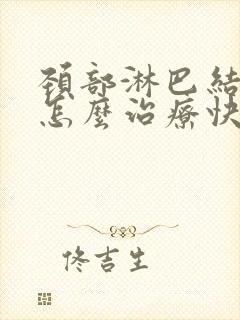 頚部淋巴結
怎麼治療快
佟吉生